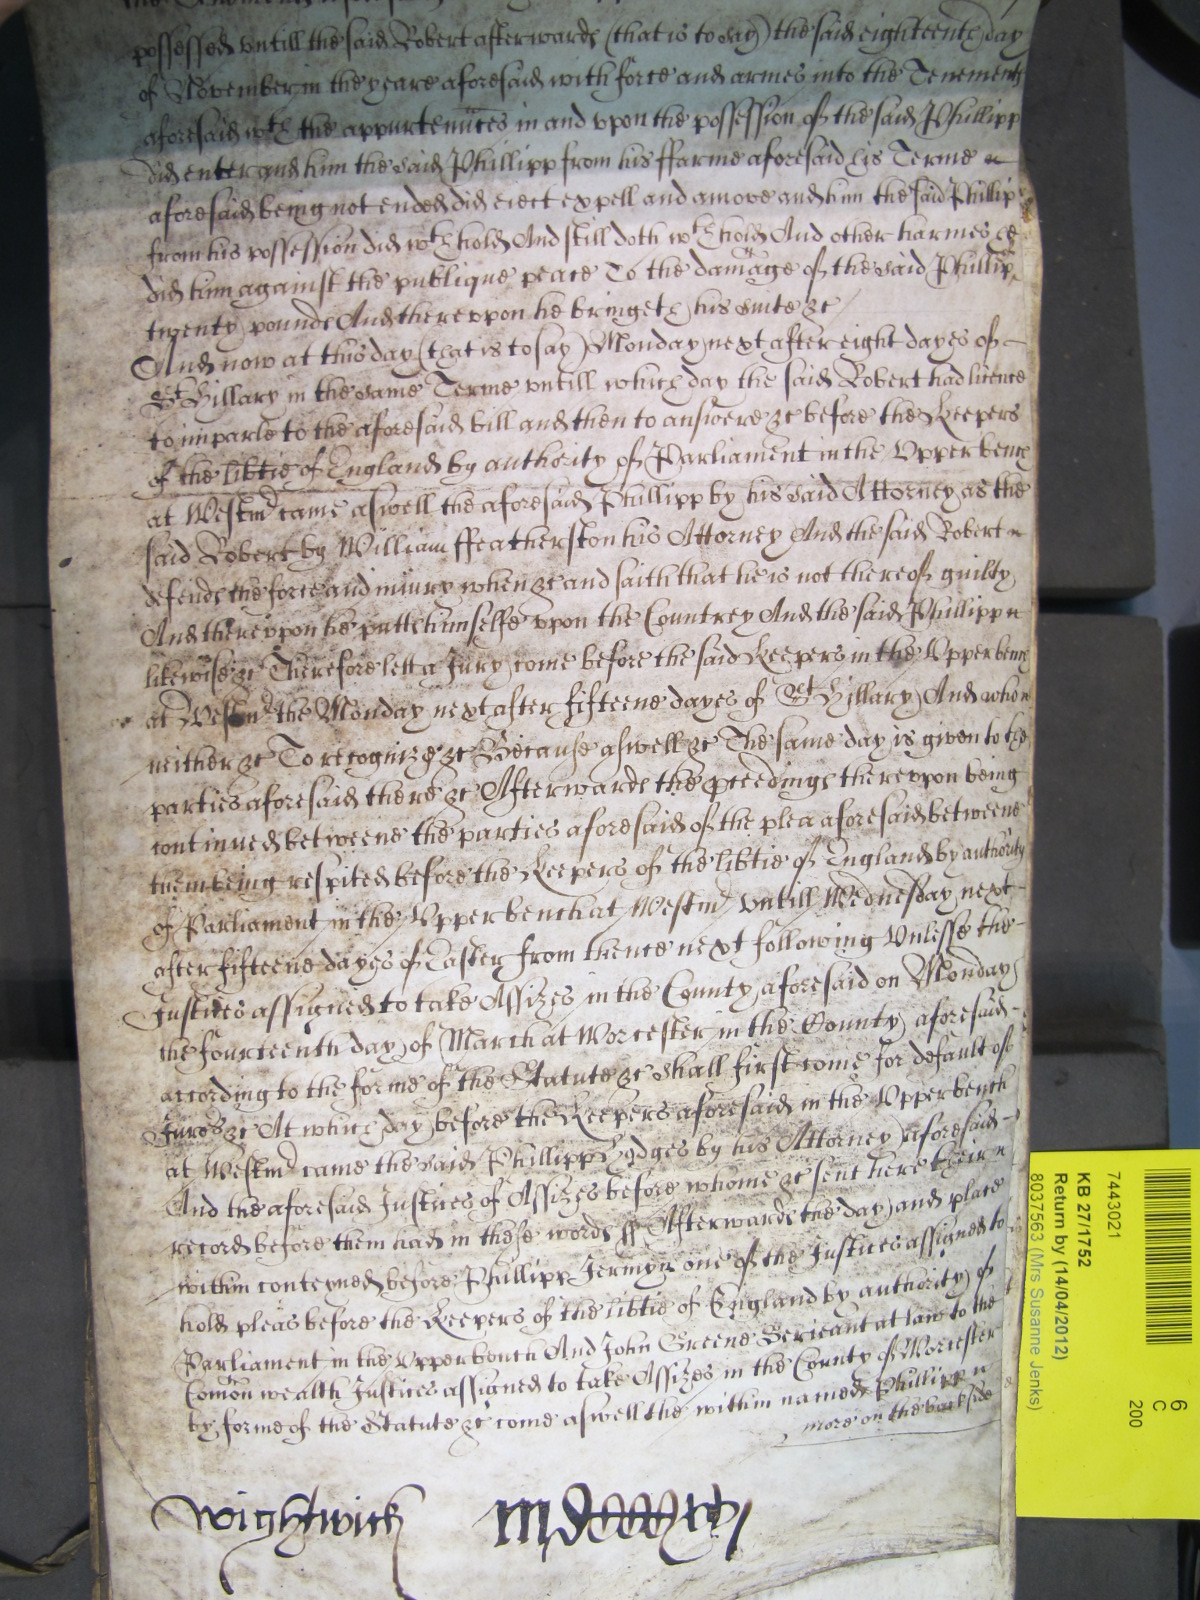 possessed vntill the said Robert afterwards (that is to say) the said eighteenth day
of November in the yeare aforesaid with force and armes into the Tenements
aforesaid wth the appurtennces in and vpon the possession of the said Phillipp
did enter and him the said Phillipp from his ffarme aforesaid his Terme
aforesaid being not ended did eiect expell and amove and him the said Phillip
from his possession did wthhold And still doth wthhold And other harmes &c
did him against the publique peace To the damage of the said Phillip
twenty pounds And therevpon he bringeth his suite &c
And now at this day (that is to say) Monday next after eight dayes of
St Hillary in the same Terme vntill which day the said Robert had licence
to imparle to the aforesaid bill and then to answere &c before the Keepers
of the libtie of England by authority of Parliament in the Vpperbench
at Westmr came aswell the aforesaid Phillipp by his said Attorney as the
said Robert by William ffeatherston his Attorney And the said Robert
defends the force and iniury when &c and saith that he is not thereof guilty
And therevpon he putts himselfe vpon the Countrey And the said Phillipp
likewise &c Therefore lett a Jury come before the said Keepers in the Vpperbench
at Westmr the Monday next after fifteene dayes of St Hillary And whoe
neither &c To recognize &c Because aswell &c The same day is given to the
parties aforesaid there &c Afterwards the pceedings therevpon being
continued betweene the parties aforesaid of the plea aforesaid betweene
them being respited before the Keepers of the libtie of England by authority
of Parliament in the Vpperbench at Westmr vntill Wednesday next
after fifteene dayes of Easter from thence next following Vnlesse the
Justices assigned to take Assizes in the County aforesaid on Monday
the fourteenth day of March at Worcester in the County aforesaid
according to the forme of the Statute &c shall first come for default of
Jurors &c At which day before the Keepers aforesaid in the Vpperbench
at Westmr came the said Phillipp Hodges by his Attorney aforesaid
And the aforesaid Justices of Assizes before whome &c sent here their
record before them had in these words ss Afterwards the day and place
within conteyned before Phillipp Jermyn one of the Justices assigned to
hold pleas before the Keepers of the libtie of England by authority of
Parliament in the Vpperbench And John Greene Serieant at law to the
Comon wealth Justices assigned to take Assizes in the County of Worcester
by forme of the Statute &c come aswell the within named Phillipp
more on the backside
Wightwick
7443021
KB 27/1752
Return by (14/04/2012)
8037563 (Mrs Susanne Jenks)
6
C
200